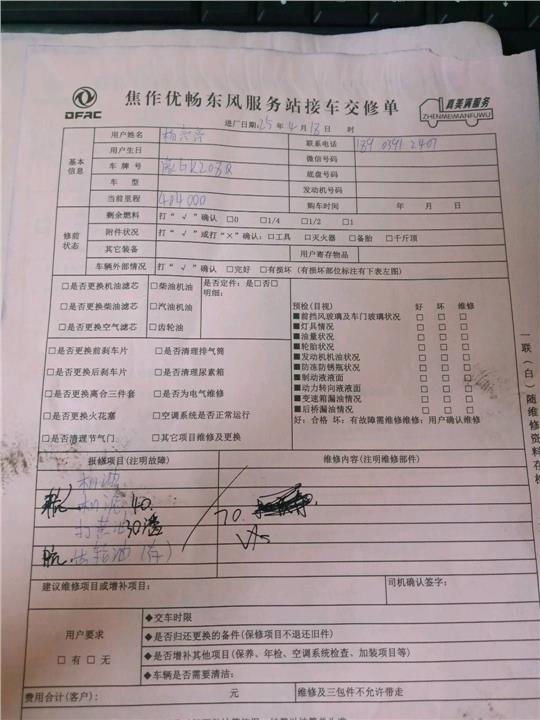 DFAC
焦作优畅东风服务站接车交修单
真美满服务
ZHENMEIMANFUWU
进厂日期:25年4月18日 时
基本信息
用户姓名
联系电话 189 0391 2407
用户生日
微信号码
车牌号
底盘号码
车型
发动机号码
当前里程 404000
购车时间 年 月 日
修前状态
剩余燃料 打“√”确认 □0 □1/4 □1/2 □1
附件状况 打“√”或打“×”确认:□工具 □灭火器 □备胎 □千斤顶
其它装备
用户寄存物品
车辆外部情况 打“√”确认 □完好 □有损坏(有损坏部位标注有下表左图)
□是否更换机油滤芯 □柴油机油 是否定件:是□否□
□是否更换柴油滤芯 □汽油机油 明细:
□是否更换空气滤芯 □齿轮油
□是否更换前刹车片 □是否清理排气筒
□是否更换后刹车片 □是否清理尿素箱
□是否更换离合三件套 □是否为电气维修
□是否更换火花塞 □空调系统是否正常运行
□是否清理节气门 □其它项目维修及更换
预检(目视) 好 坏 维修
■前挡风玻璃及车门玻璃状况 □ □ □
■灯具情况 □ □ □
■油量状况 □ □ □
■轮胎状况 □ □ □
■发动机机油状况 □ □ □
■防冻防锈瓶状况 □ □ □
■制动液液面 □ □ □
■动力转向液液面 □ □ □
■变速箱漏油情况 □ □ □
■后桥漏油情况 □ □ □
好:合格 坏:有故障需维修维修:用户确认维修
一联(白)随维修资料存档
报修项目(注明故障)
维修内容(注明维修部件)
机油
机滤 40.
打黄油 30
齿轮油(存)
70.
建议维修项目或增补项目:
司机确认签字:
用户要求
□有 □无
◆交车时限
◆是否归还更换的备件(保修项目不退还旧件)
◆是否增补其他项目(保养、年检、空调系统检查、加装项目等)
◆车辆是否需要清洁:
费用合计(客户): 元
维修及三包件不允许带走